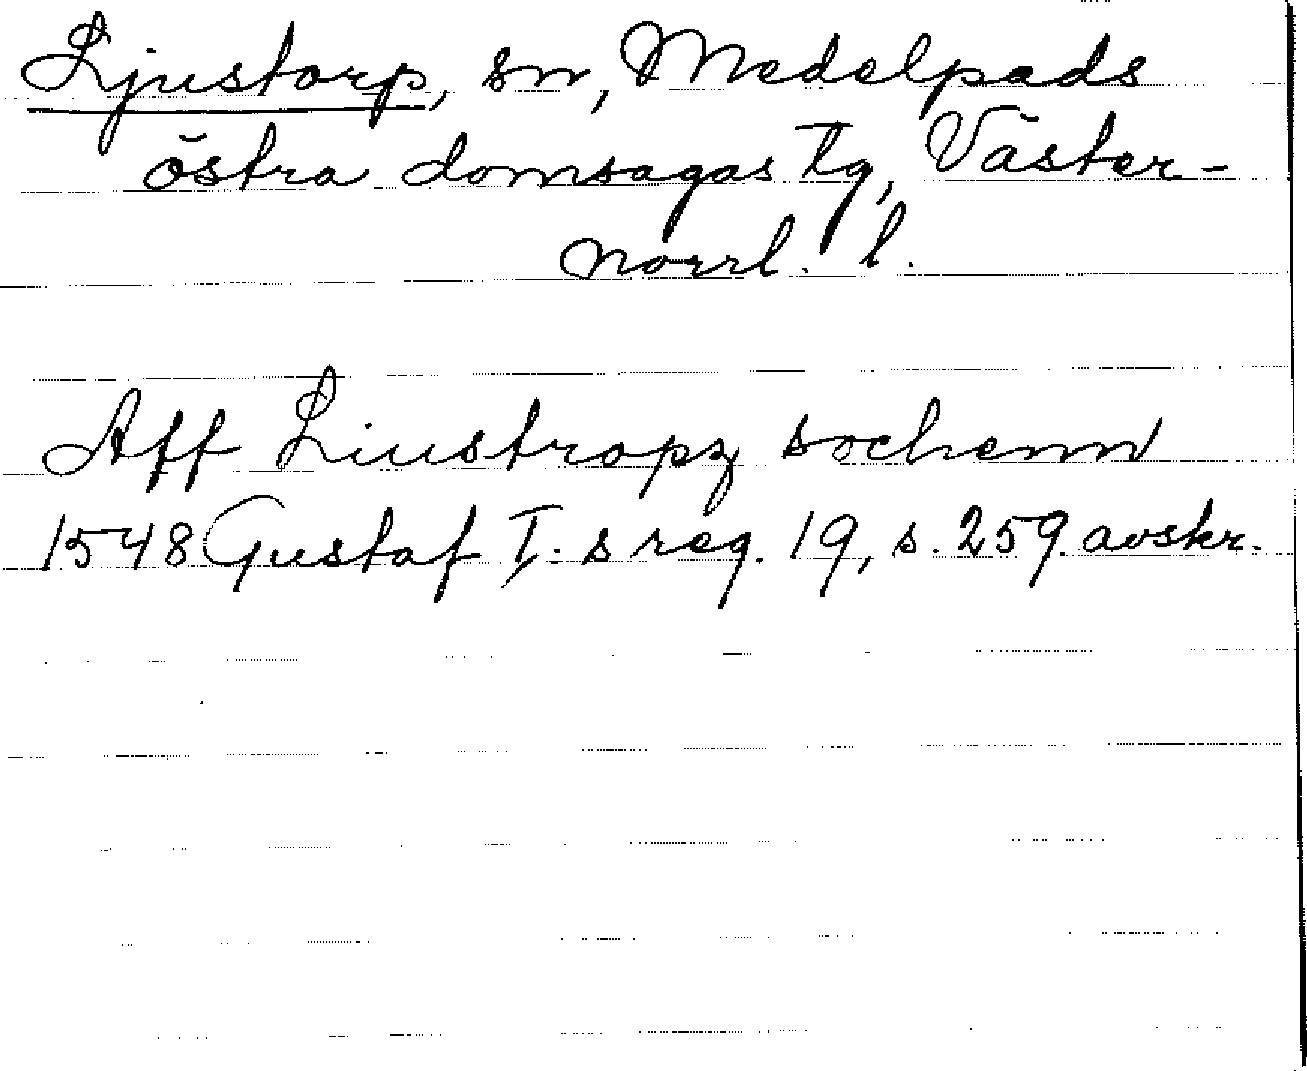 Ljustorp, sn, Medelpads
östra domsagas tg, Väster-
norrl. l.
Aff Liustropz sochenn
1548 Gustaf I. s reg. 19, s. 259. avskr.